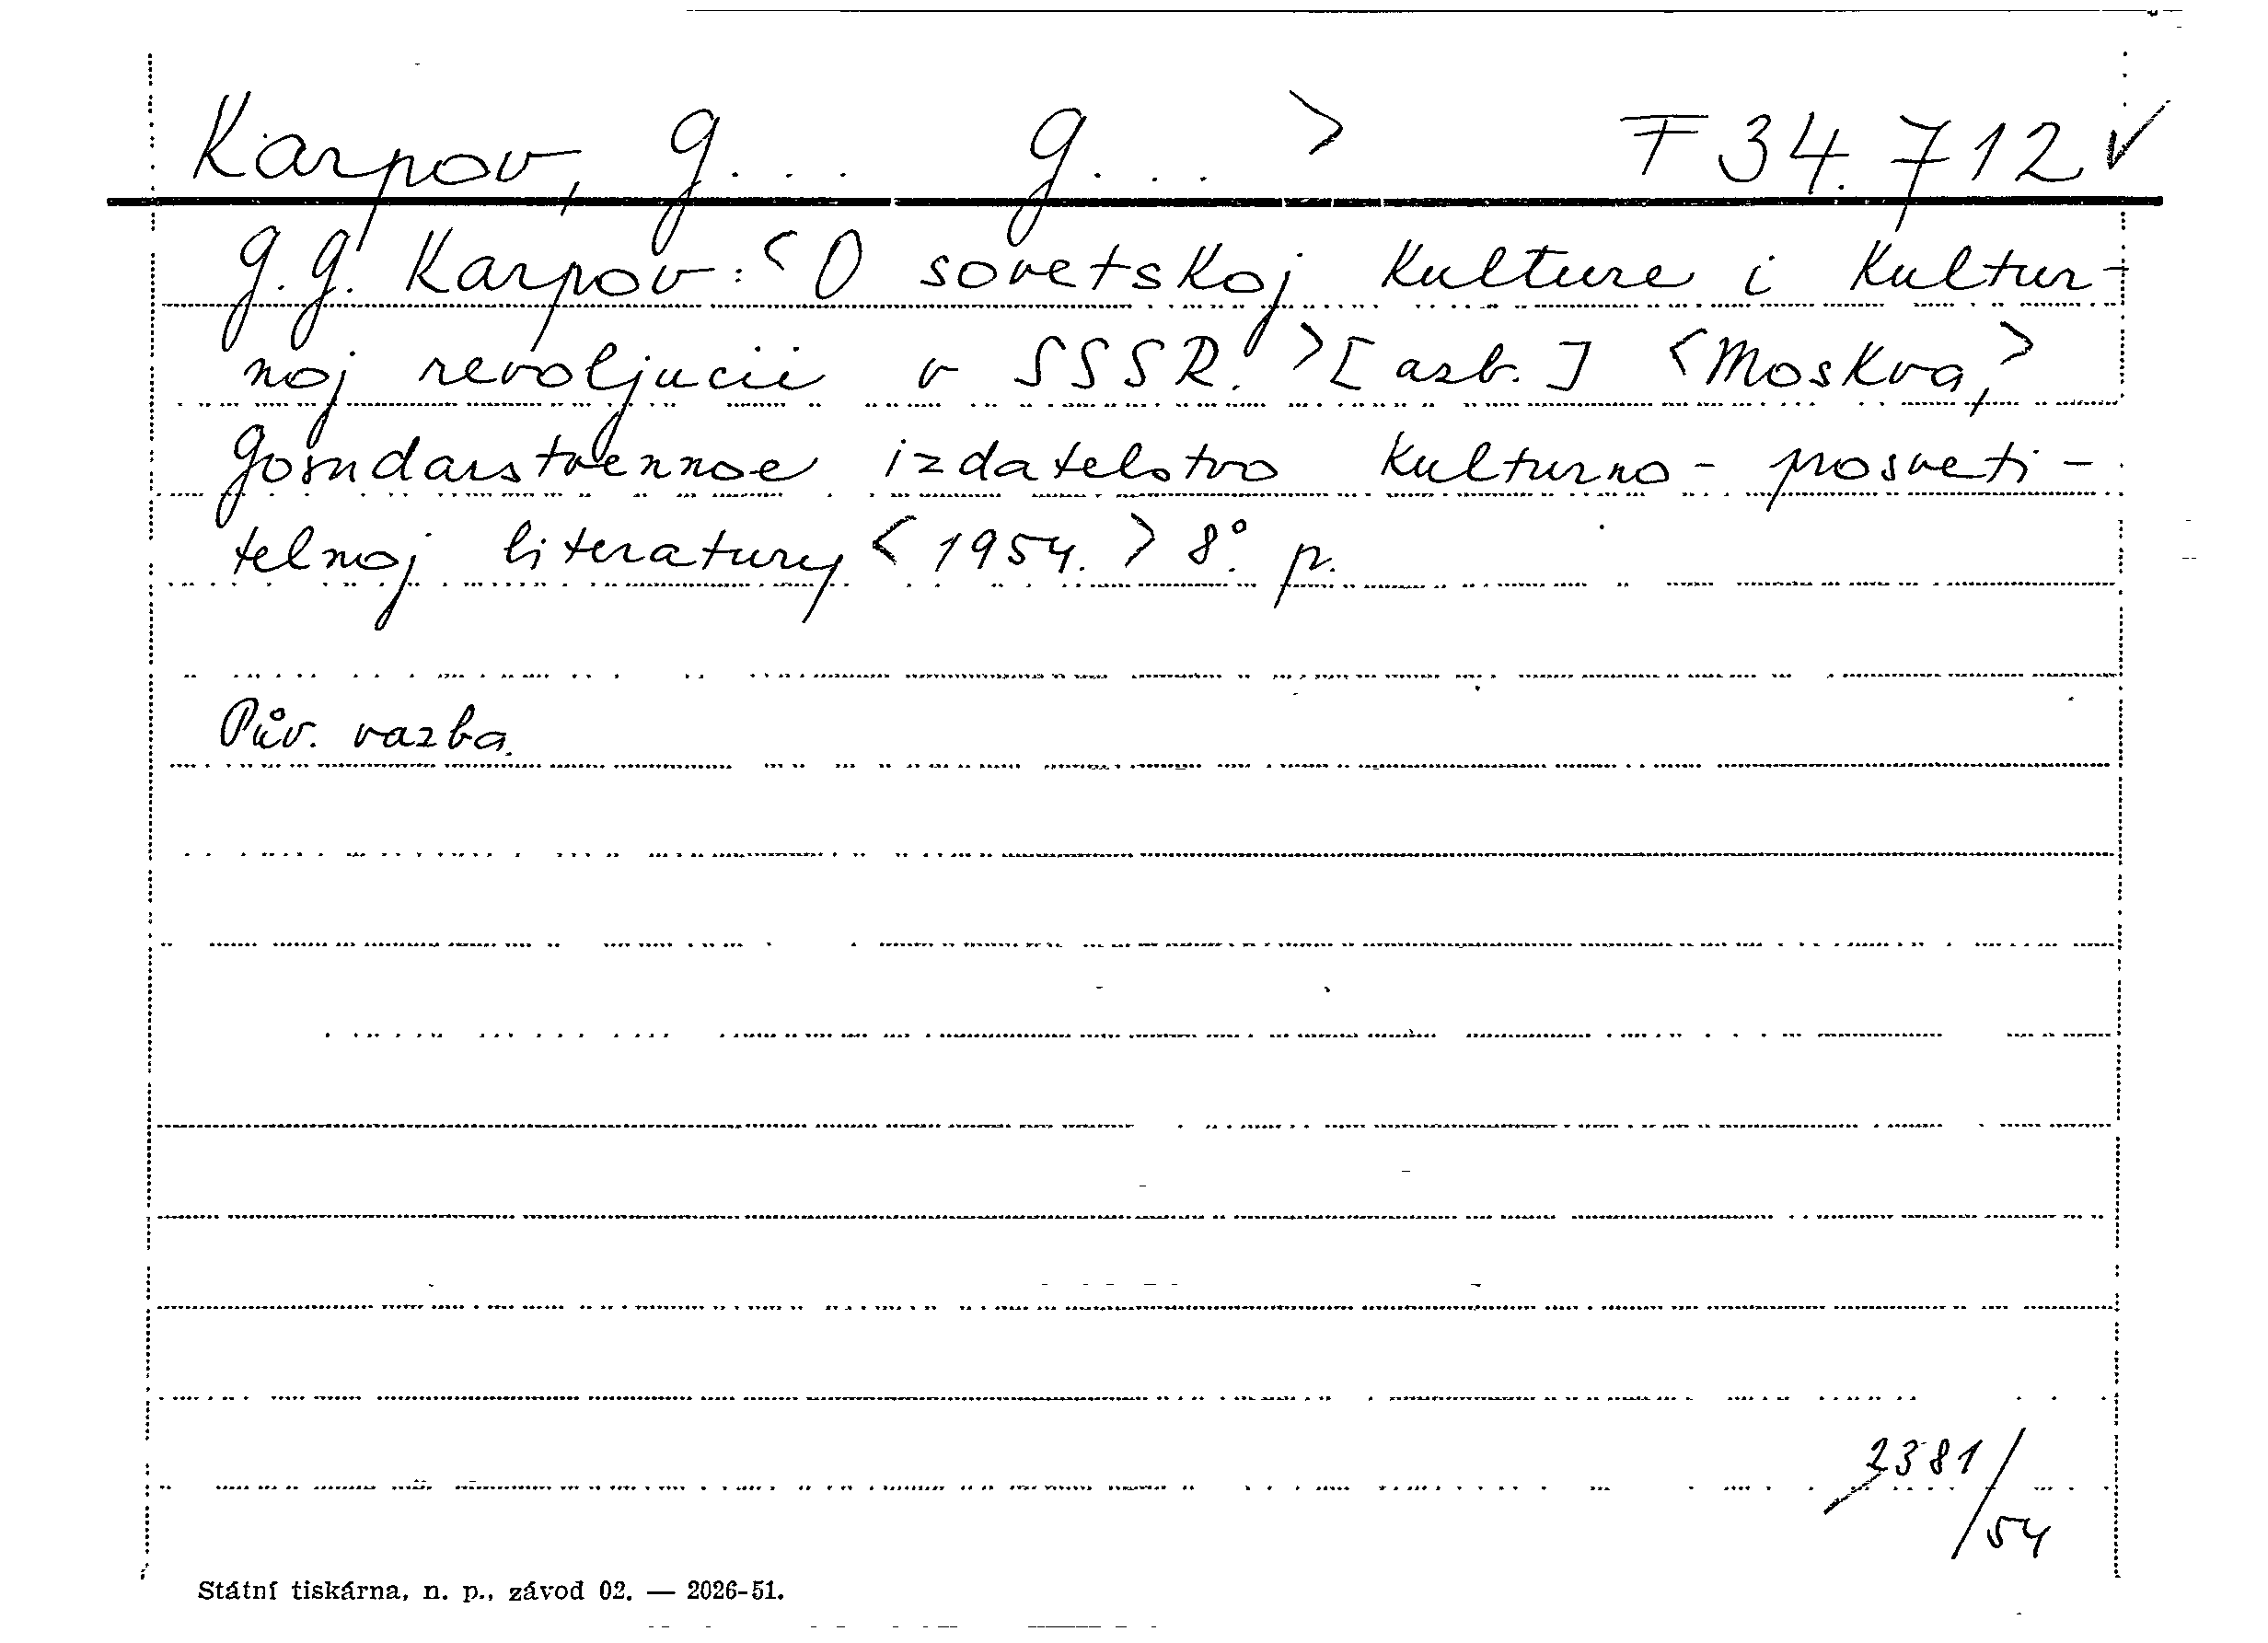 Karpov, G... G... > F 34.712 ✓
G.G. Karpov: <O sovetskoj kulture i kultur-
noj revoljucii v SSSR.> [azb.] <Moskva,>
Gosudarstvennoe izdatelstvo kulturno-prosveti-
telnoj literatury <1954.> 8°. p.
Pův. vazba.
2381/54
Státní tiskárna, n. p., závod 02. — 2026-51.